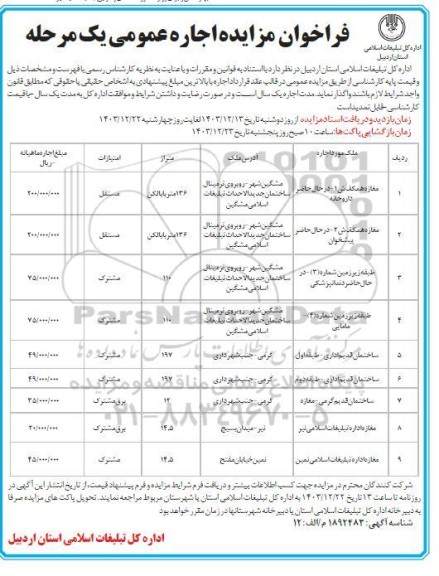 فراخوان مزایده اجاره عمومی یک مرحله
اداره کل تبلیغات اسلامی
استان اردبیل
اداره کل تبلیغات اسلامی استان اردبیل در نظر دارد با استناد به قوانین و مقررات و با عنایت به نظریه کارشناس رسمی با فهرست و مشخصات ذیل
و قیمت پایه کارشناسی از طریق مزایده عمومی در قالب عقد قرارداد اجاره با بالاترین مبلغ پیشنهادی به اشخاص حقیقی یا حقوقی که مطابق قانون
واجد شرایط لازم باشند واگذار نماید. مدت اجاره یک سال است و در صورت رضایت و داشتن شرایط و موافقت اداره کل به مدت یک سال -با قیمت
کارشناسی- قابل تمدید است
زمان بازدید و دریافت اسناد مزایده: از روز دوشنبه تاریخ ۱۴۰۳/۱۲/۱۳ لغایت روز چهارشنبه ۱۴۰۳/۱۲/۲۲
زمان بازگشایی پاکت‌ها: ساعت ۱۰ صبح روز پنجشنبه تاریخ ۱۴۰۳/۱۲/۲۳
ردیف ملک مورد اجاره آدرس ملک متراژ امتیازات مبلغ اجاره ماهیانه -ریال
۱ مغازه همکف ش ۱- در حال حاضر داروخانه مشگین شهر- روبروی ترمینال ساختمان جدید الاحداث تبلیغات اسلامی مشگین ۱۳۶ متر با بالکن مستقل ۲۰۰/۰۰۰/۰۰۰
۲ مغازه همکف ش ۲- در حال حاضر پیشخوان مشگین شهر- روبروی ترمینال ساختمان جدید الاحداث تبلیغات اسلامی مشگین ۱۳۶ متر با بالکن مستقل ۲۰۰/۰۰۰/۰۰۰
۳ طبقه زیرزمین شماره (۳)- در حال حاضر دندانپزشکی مشگین شهر- روبروی ترمینال ساختمان جدید الاحداث تبلیغات اسلامی مشگین ۱۱۰ مشترک ۷۵/۰۰۰/۰۰۰
۴ طبقه زیرزمین شماره (۴)- مامایی مشگین شهر- روبروی ترمینال ساختمان جدید الاحداث تبلیغات اسلامی مشگین ۱۱۰ مشترک ۷۵/۰۰۰/۰۰۰
۵ ساختمان قدیم اداری- طبقه اول گرمی- جنب شهرداری ۱۹۷ مشترک ۴۹/۰۰۰/۰۰۰
۶ ساختمان قدیم اداری- طبقه دوم گرمی- جنب شهرداری ۱۹۷ مشترک ۴۹/۰۰۰/۰۰۰
۷ ساختمان قدیم گرمی- مغازه گرمی- جنب شهرداری ۱۲ برق مشترک ۳۵/۰۰۰/۰۰۰
۸ مغازه اداره تبلیغات اسلامی نیر نیر- میدان بسیج ۱۴.۵ برق مشترک ۲۰/۰۰۰/۰۰۰
۹ مغازه اداره تبلیغات اسلامی نمین نمین خیابان مفتح ۱۴.۵ مشترک ۴۵/۰۰۰/۰۰۰
شرکت کنندگان محترم در مزایده جهت کسب اطلاعات بیشتر و دریافت فرم شرایط مزایده و فرم پیشنهاد قیمت، از تاریخ انتشار این آگهی در
روزنامه تا ساعت ۱۳ تاریخ ۱۴۰۳/۱۲/۲۲ به اداره کل تبلیغات اسلامی استان یا شهرستان مربوط مراجعه نمایند. تحویل پاکت های مزایده صرفا
به دبیرخانه اداره کل استان یا دبیرخانه شهرستانها در زمان مقرر خواهد بود
شناسه آگهی: ۱۸۹۲۴۸۳ م/الف: ۱۲
اداره کل تبلیغات اسلامی استان اردبیل
ParsNamadData
۰۲۱-۸۸۳۴۹۶۷۰-۵